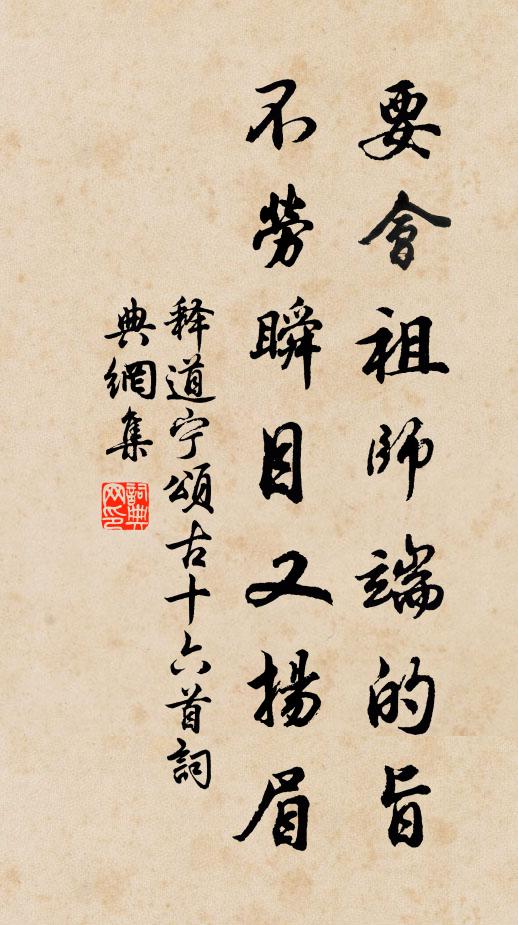 要會祖師端的旨
不勞瞬目又揚眉
释道宁頌古十六首詞
典網集
詞典
网印